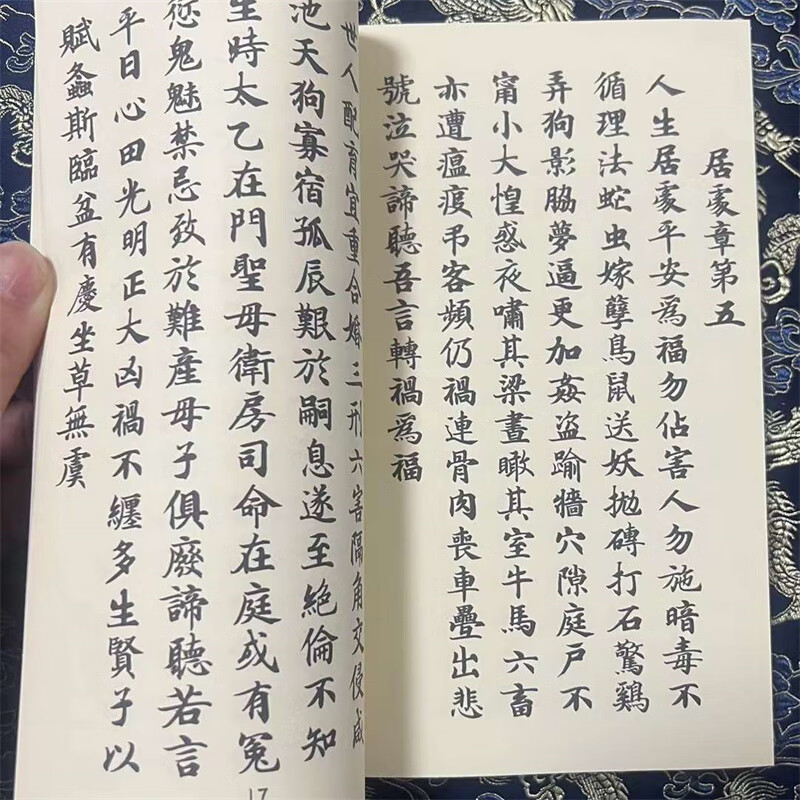 居處章第五
人生居處平安爲福勿佔害人勿施暗毒不
循理法蛇虫嫁孽鳥鼠送妖拋磚打石驚鷄
弄狗影脇夢逼更加姦盜踰牆穴隙庭戶不
甯小大惶惑夜嘯其梁晝瞰其室牛馬六畜
亦遭瘟疫弔客頻仍禍連骨肉喪車疊出悲
號泣哭諦聽吾言轉禍爲福
世人配育宜重合嫁三刑六害隔角交侵咸
池天狗寡宿孤辰艱於嗣息遂至絕倫不知
生時太乙在門聖母衛房司命在庭或有冤
愆鬼魅禁忌致於難產母子俱廢諦聽若言
平日心田光明正大凶禍不纏多生賢子以
賦螽斯臨盆有慶坐草無虞
17